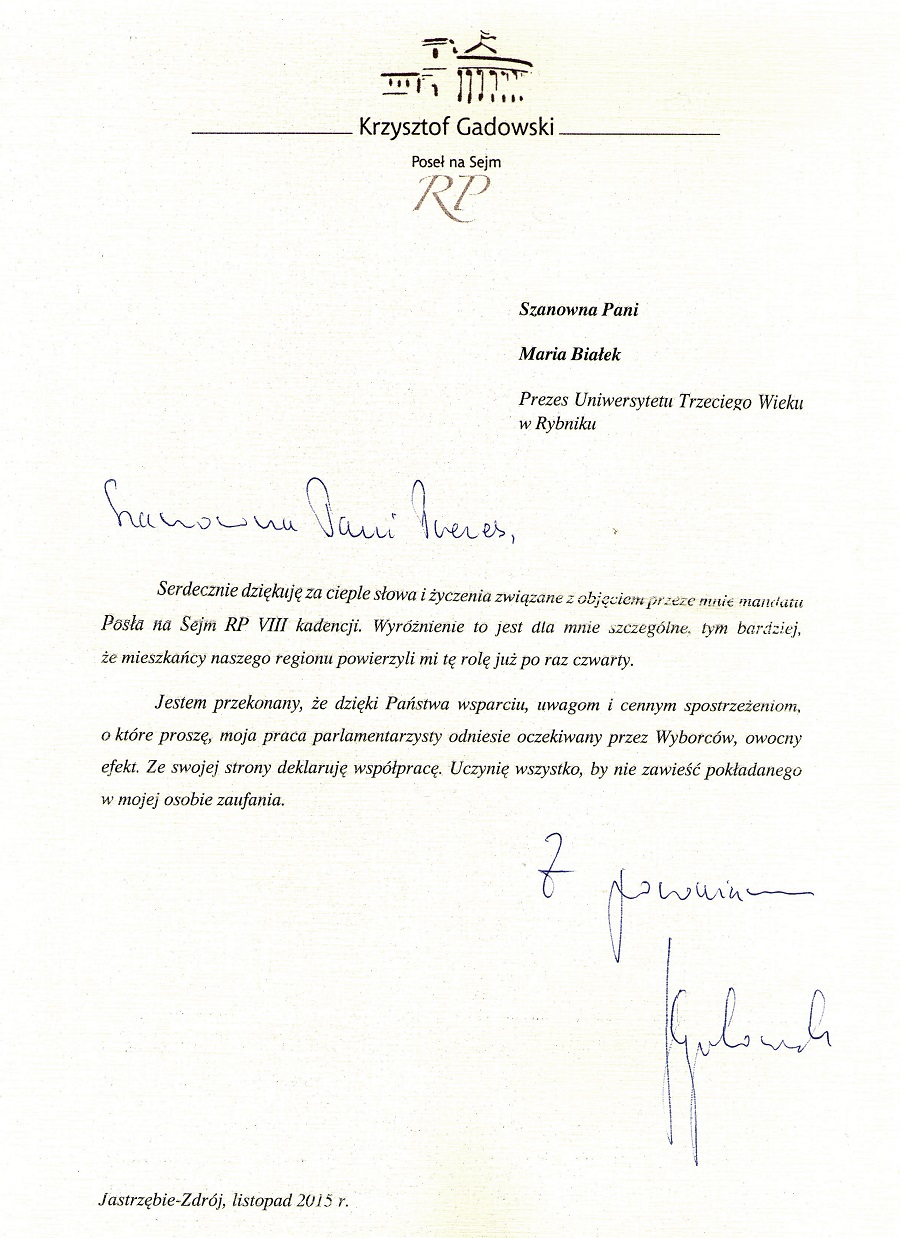 Krzysztof Gadowski
Poseł na Sejm
RP
Szanowna Pani
Maria Białek
Prezes Uniwersytetu Trzeciego Wieku
w Rybniku
Szanowna Pani Prezes,
Serdecznie dziękuję za ciepłe słowa i życzenia związane z objęciem przeze mnie mandatu
Posła na Sejm RP VIII kadencji. Wyróżnienie to jest dla mnie szczególne, tym bardziej,
że mieszkańcy naszego regionu powierzyli mi tę rolę już po raz czwarty.
Jestem przekonany, że dzięki Państwa wsparciu, uwagom i cennym spostrzeżeniom,
o które proszę, moja praca parlamentarzysty odniesie oczekiwany przez Wyborców, owocny
efekt. Ze swojej strony deklaruję współpracę. Uczynię wszystko, by nie zawieść pokładanego
w mojej osobie zaufania.
Z poważaniem
KGadowski
Jastrzębie-Zdrój, listopad 2015 r.